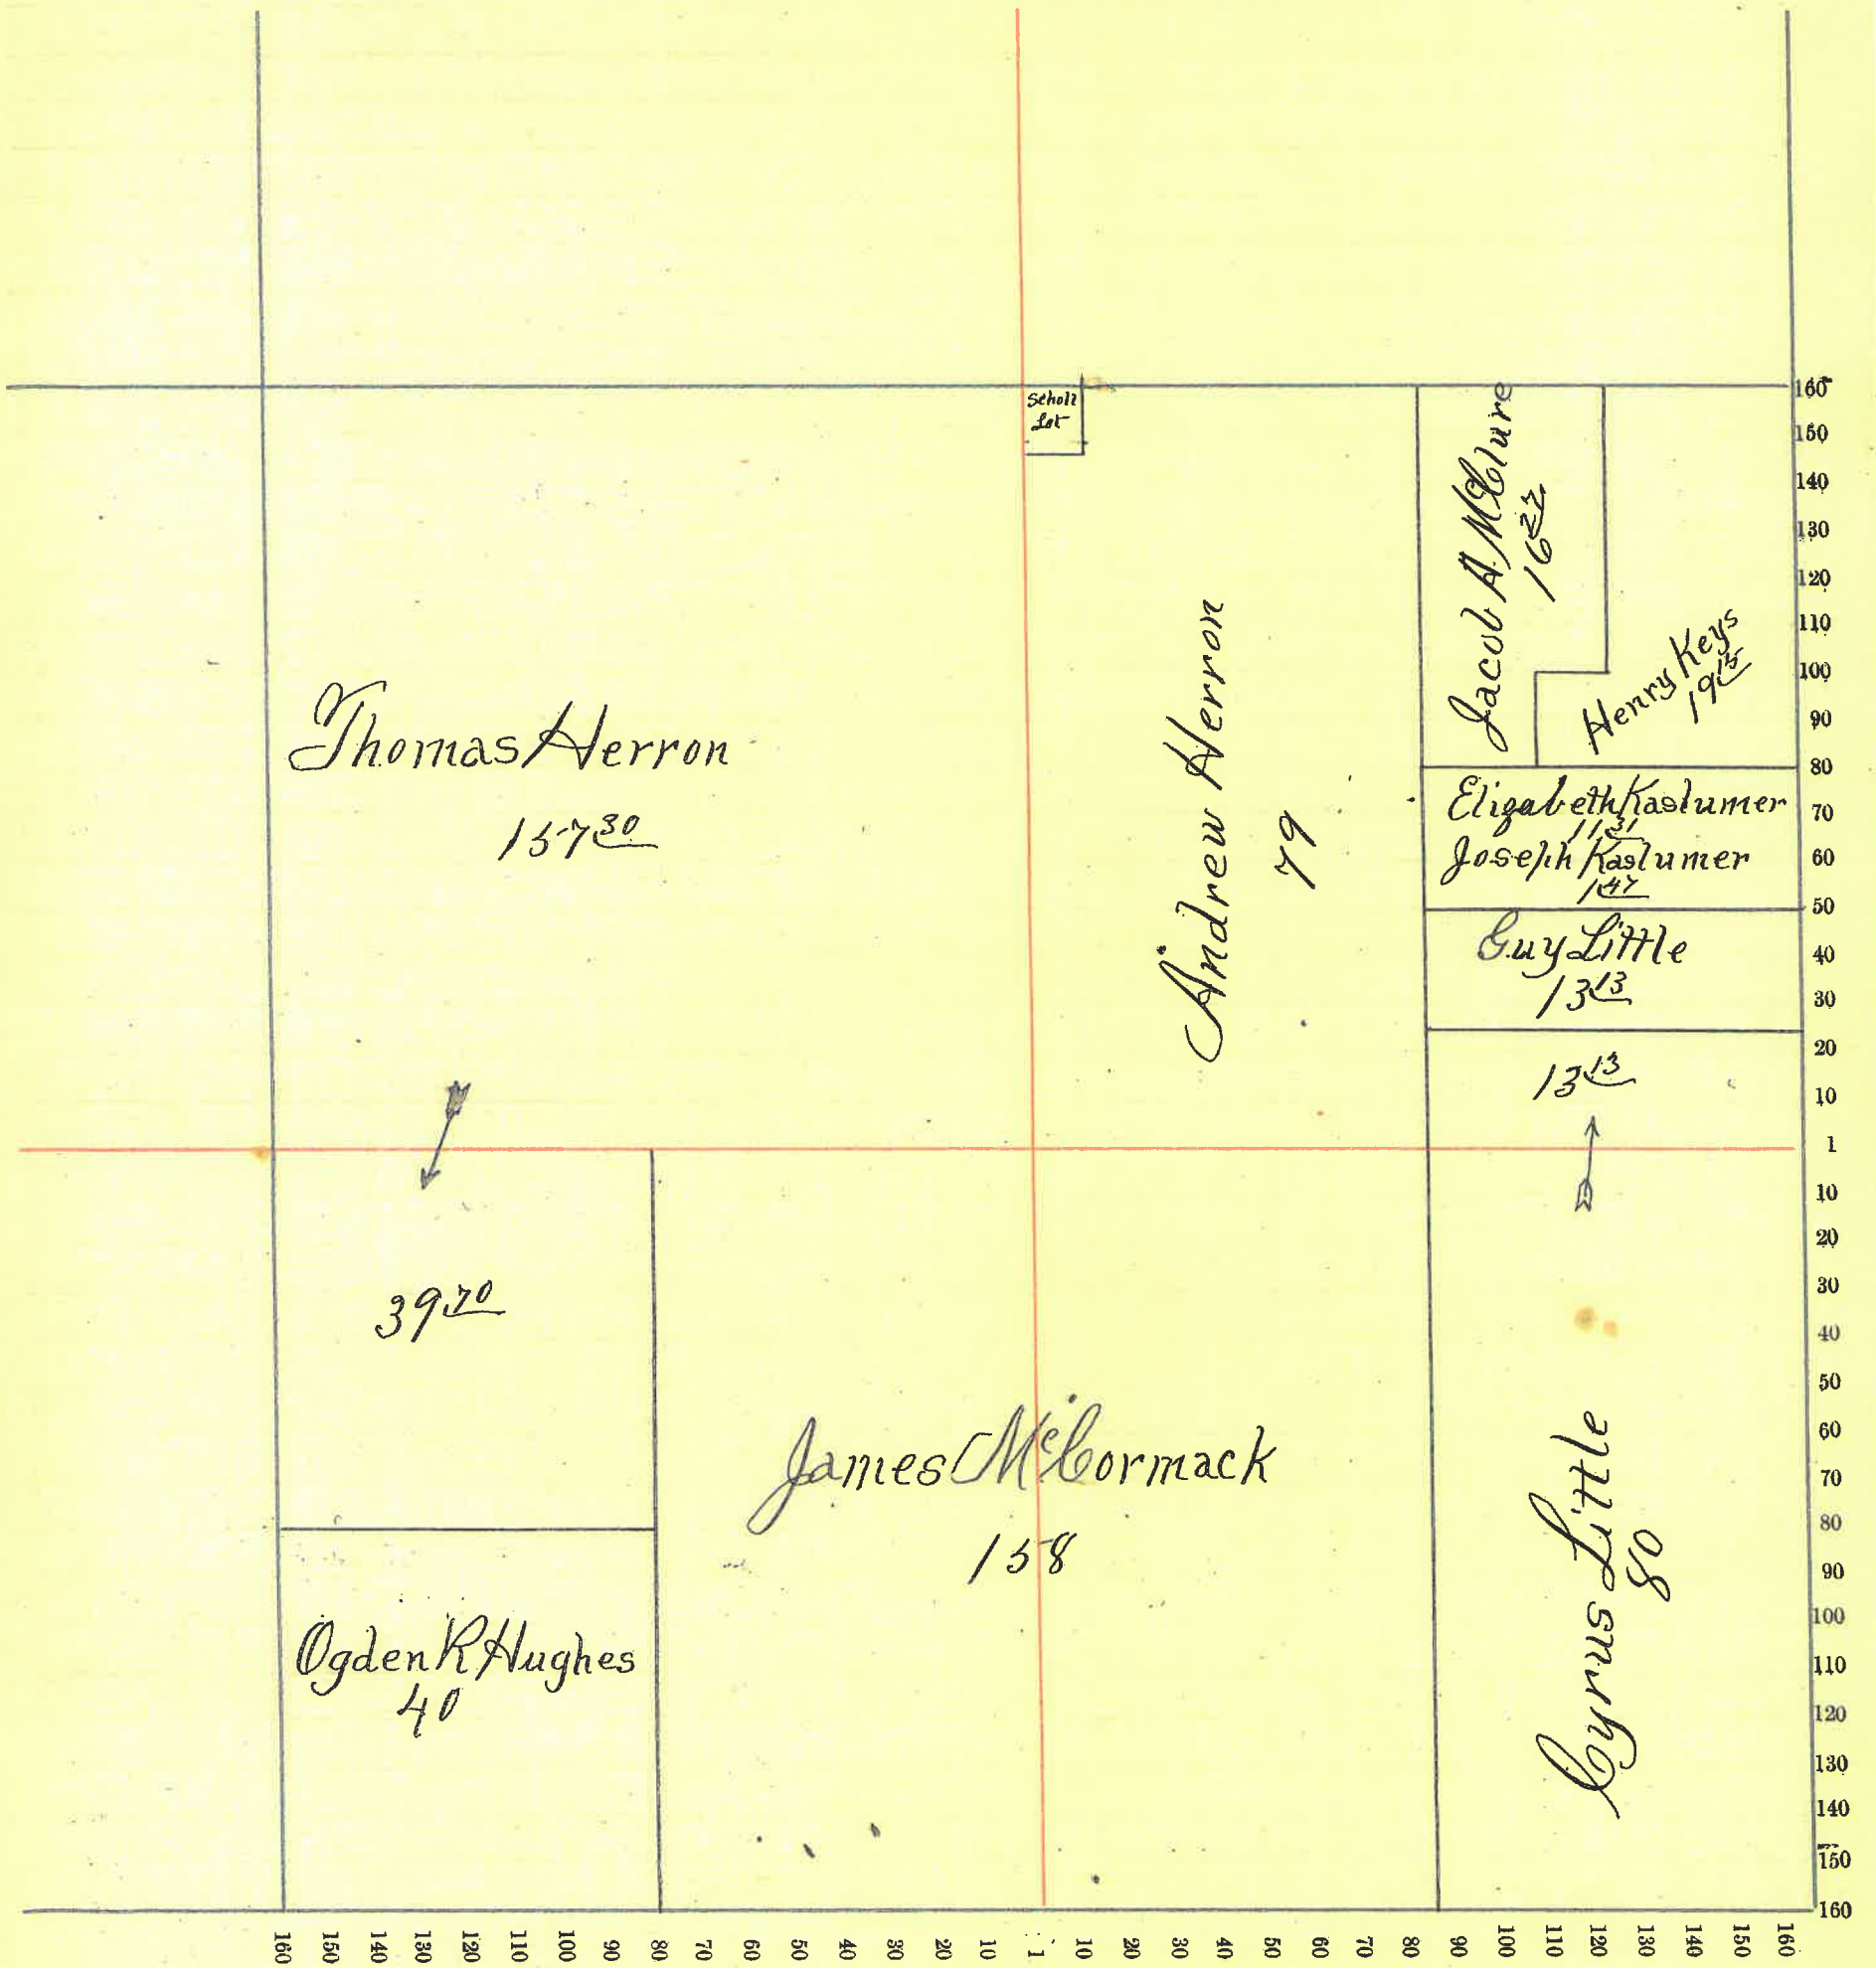 Scholl
Lot
Thomas Herron
157 30
Andrew Herron
79
Jacob A. McClure
16 27
Henry Keys
19 15
Elizabeth Kaslumer
11 31
Joseph Kaslumer
1 47
Guy Little
13 13
13 13
39.70
James McCormack
158
Ogden R Hughes
40
Cyrus Little
80
160
150
140
130
120
110
100
90
80
70
60
50
40
30
20
10
1
10
20
30
40
50
60
70
80
90
100
110
120
130
140
150
160
160 150 140 130 120 110 100 90 80 70 60 50 40 30 20 10 1 10 20 30 40 50 60 70 80 90 100 110 120 130 140 150 160